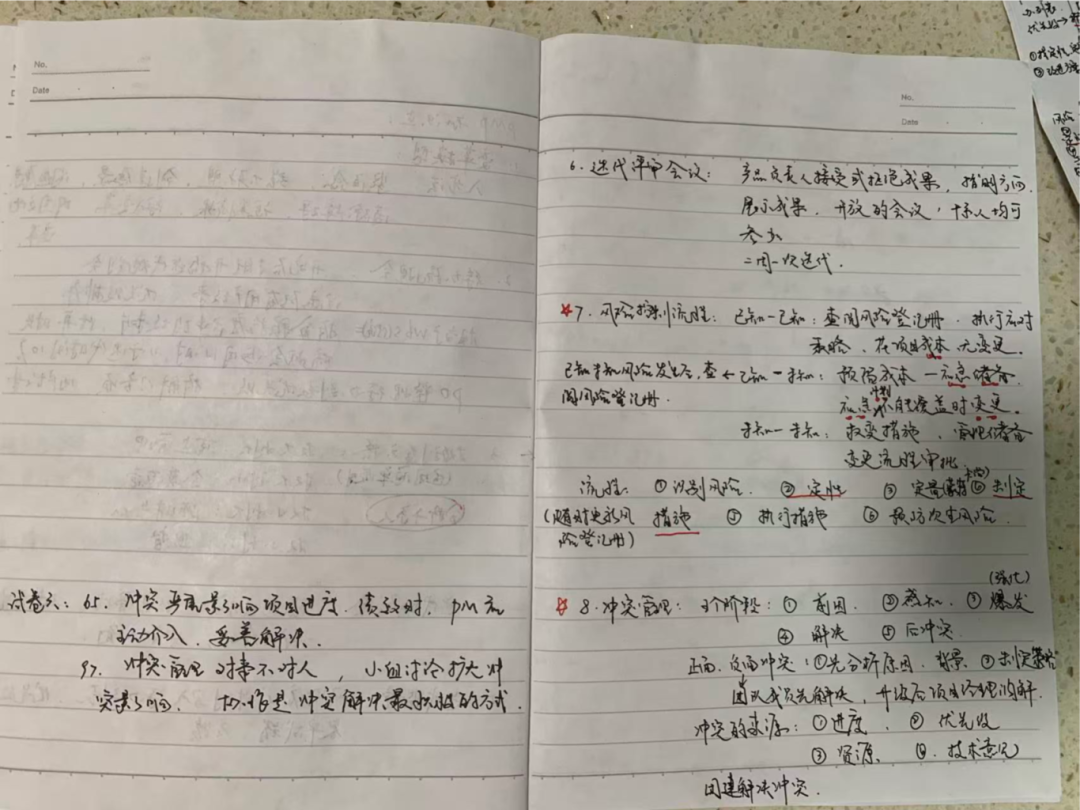 No.
Date
试卷六：65. 冲突严重影响项目进度、绩效时，PM应
主动介入，妥善解决.
97. 冲突管理 对事不对人， 小组讨论扩大冲
突影响. 协作是冲突解决最积极的方式.
No.
Date
6. 迭代评审会议： 产品负责人接受或拒绝成果，指明方向.
展示成果. 开放的会议，干系人均可
参加
二周一次迭代.
7. 风险控制流程： 已知—已知：查阅风险登记册. 执行应对
策略. 在项目成本 无变更.
已知未知风险发生后，查 ← 已知—未知： 预留成本 — 应急储备.
阅风险登记册.
应急计划不能覆盖时变更.
未知—未知： 权变措施. 管理储备
变更流程审批
流程： ① 识别风险. ② 定性 ③ 定量 ④ 制定
(随时更新风 措施 ⑤ 执行措施 ⑥ 预防次生风险.
险登记册)
(强化)
8. 冲突管理： 5个阶段： ① 前因. ② 感知. ③ 爆发
④ 解决 ⑤ 后冲突.
正面. 负面冲突：①先分析原因. 背景. ②制定策略
团队成员先解决，升级后项目经理调解.
冲突的来源：①进度. ② 优先级
③ 资源. ④. 技术意见
团建解决冲突.